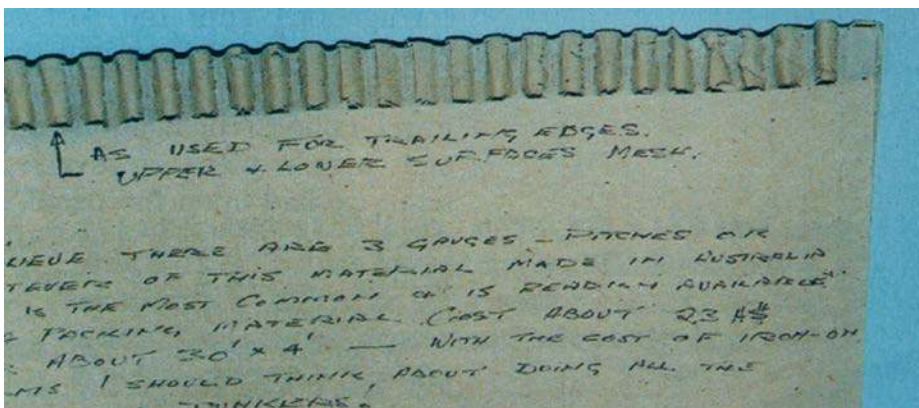 AS USED FOR TRAILING EDGES.
UPPER & LOWER SURFACES MESH.
LIEVE THERE ARE 3 GAUGES - PITCHES OR
TEVER OF THIS MATERIAL MADE IN AUSTRALIA
IS THE MOST COMMON & IS READILY AVAILABLE
PACKING MATERIAL. COST ABOUT 23 A$
ABOUT 30' x 4' — WITH THE COST OF IRON-ON
MS I SHOULD THINK ABOUT DOING ALL THE